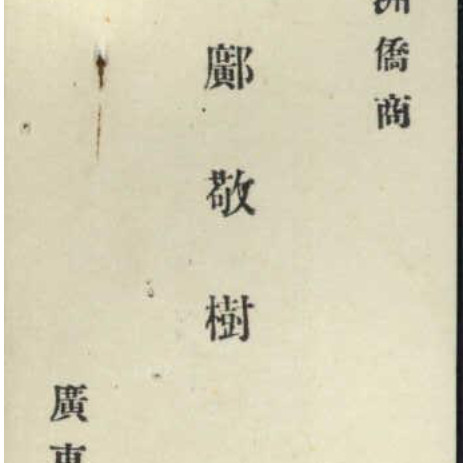 洲僑商
鄺敬樹
廣東